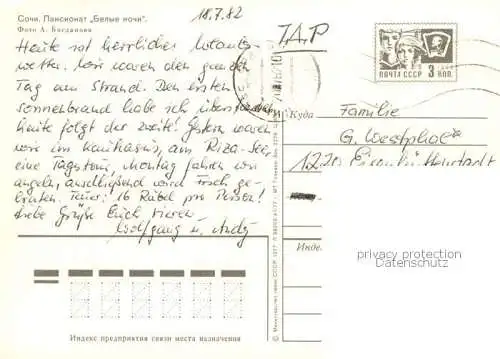 Сочи. Пансионат „Белые ночи".
Фото А. Богданова
18.7.82
Heute ist herrliches
wetter. Wir waren den ganzen
Tag am Strand. Den ersten
sonnenbrand habe ich überstanden
heute folgt der zweite! Gestern waren
wir im Kaukasus, am Riza-See,
eine Tagestour, Montag fahren wir
angeln, anschließend wird Fisch ge-
braten. 16 Rubel pro Person!
Liebe Grüße Euch
Wolfgang u. Andy
ПОЧТА СССР 3 КОП
Куда
Familie
G. Westphal
1220 Eisenhüttenstadt
privacy protection
Datenschutz
Индекс предприятия связи места назначения